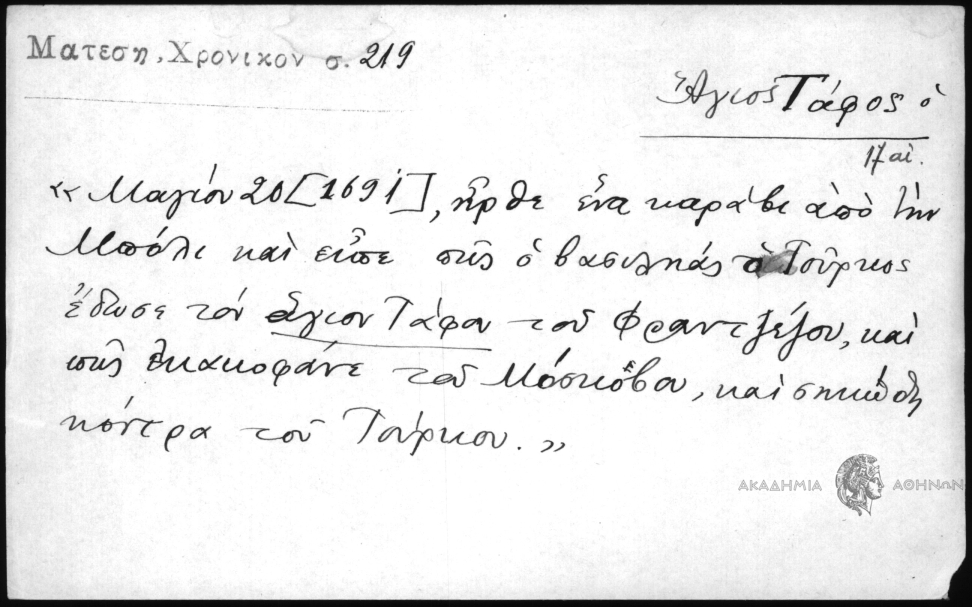 Ματεση, Χρονικον σ. 219
Ἅγιος Τάφος ὁ
17 αἰ.
« Μαγίου 20 [1691], ἦρθε ἕνα καράβι ἀπὸ τὴν
Μπόλι καὶ εἶπε πῶς ὁ βασιληάς ὁ Τοῦρκος
ἔδωσε τὸν Ἅγιον Τάφον τοῦ Φραντζέζου, καὶ
πῶς ἐκακοφάνε τοῦ Μόσκοβου, καὶ σηκώθη
κόντρα τοῦ Τούρκου. »
ΑΚΑΔΗΜΙΑ ΑΘΗΝΩΝ